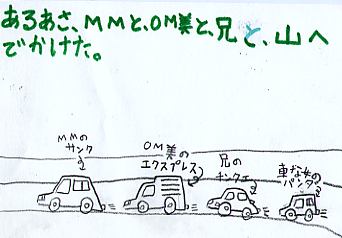 あるあさ、MMと、OM美と、兄と、山へ
でかけた。
MMの
サンク
OM美の
エクスプレス
兄の
チンクエ
車な女の
パンダ